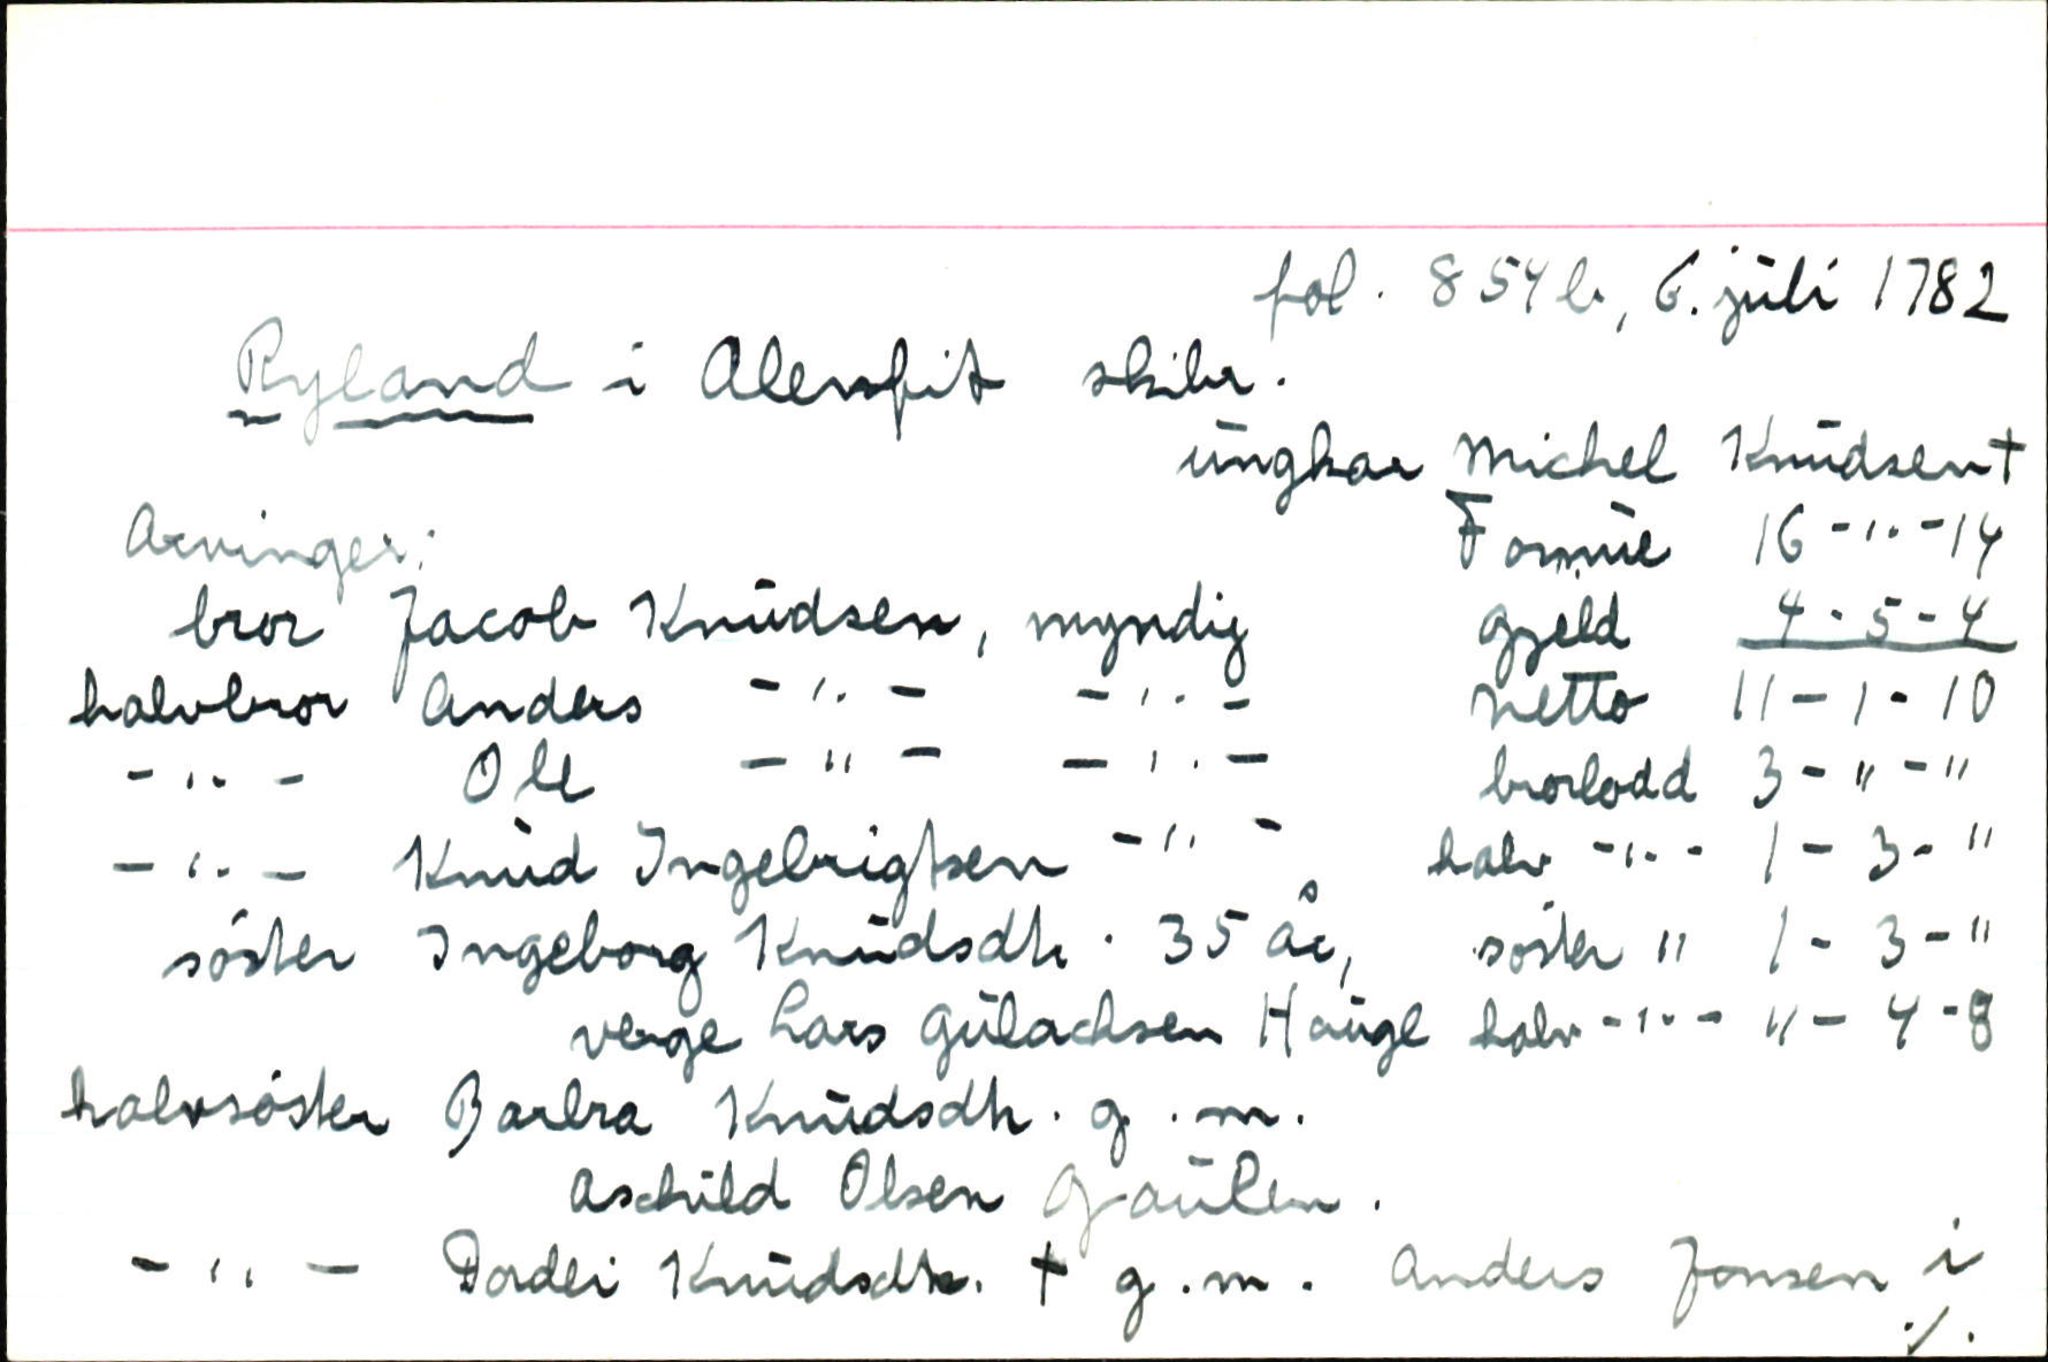 fol. 854b, 6. juli 1782
Ryland i Alenfit skibr.
ungkar Michel Knudsen †
Arvinger: Formue 16 - " - 14
bror Jacob Knudsen, myndig Gjeld 4 - 5 - 4
halvbror Anders - " - - " - Netto 11 - 1 - 10
- " - Ole - " - - " - brorlodd 3 - " - "
- " - Knud Ingebrigtsen - " - halv - " - 1 - 3 - "
söster Ingeborg Knudsdtr. 35 år, söster " 1 - 3 - "
verge Lars Gulachsen Hauge halv - " - " - 4 - 8
halvsöster Barbra Knudsdtr. g.m.
Aschild Olsen Gaulen.
- " - Dordei Knudsdtr. † g.m. Anders Jonsen i
./.